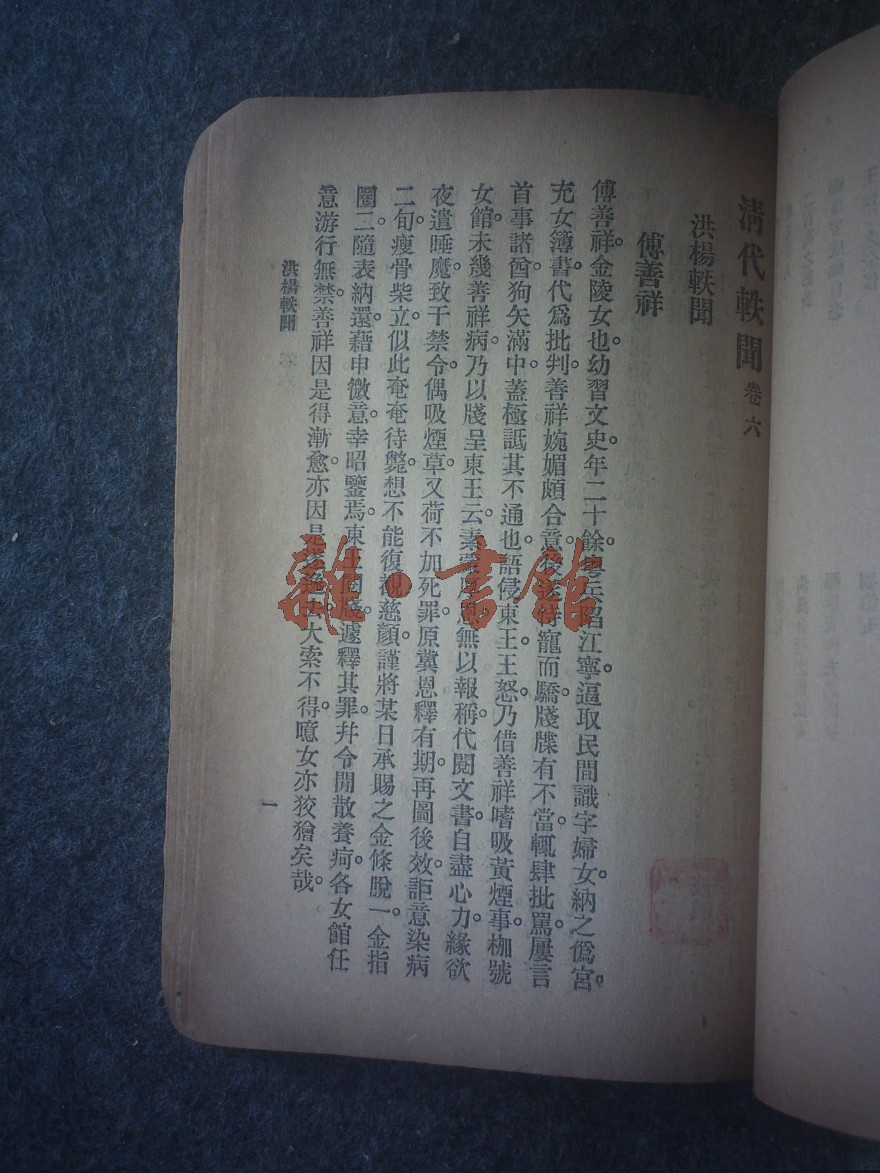 清代軼聞 卷六
洪楊軼聞
傅善祥
傅善祥。金陵女也。幼習文史。年二十餘。粵兵陷江寧。逼取民間識字婦女納之僞宮。
充女簿書。代爲批判。善祥婉媚頗合意。後遂恃寵而驕。牋牒有不當。輒肆批罵。屢言
首事諸酋狗矢滿中。蓋極詆其不通也。語侵東王。王怒。乃借善祥嗜吸黃煙事。枷號
女館。未幾善祥病。乃以牋呈東王云。素蒙厚恩。無以報稱。代閱文書。自盡心力。緣欲
夜遣睡魔。致干禁令。偶吸煙草。又荷不加死罪。原冀恩釋有期。再圖後效。詎意染病
二旬。瘦骨柴立。似此奄奄待斃。想不能復覩慈顏。謹將某日承賜之金條脫一。金指
圈二。隨表納還。藉申微意。幸昭鑒焉。東王閱牋。遽釋其罪。幷令閒散養疴。各女館任
意游行無禁。善祥因是得漸愈。亦因是大索不得。噫。女亦狡獪矣哉。
洪楊軼聞
一
雜·書館